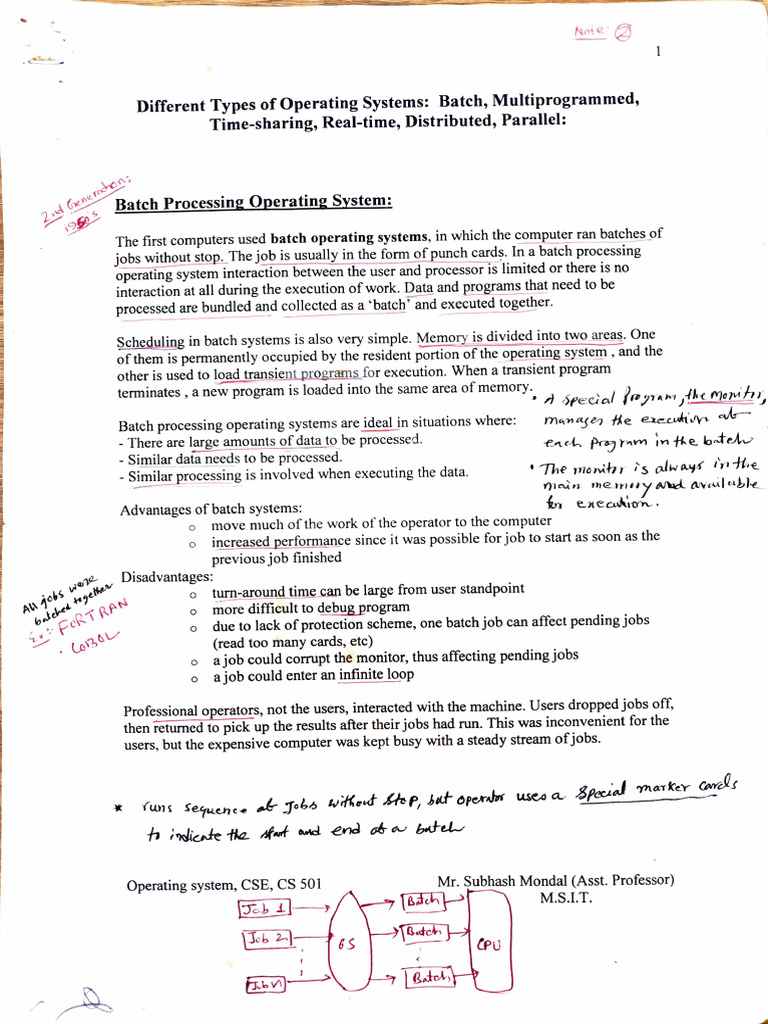 Note: 2
1
Different Types of Operating Systems: Batch, Multiprogrammed,
Time-sharing, Real-time, Distributed, Parallel:
2nd Generation:
1950s
Batch Processing Operating System:
The first computers used batch operating systems, in which the computer ran batches of
jobs without stop. The job is usually in the form of punch cards. In a batch processing
operating system interaction between the user and processor is limited or there is no
interaction at all during the execution of work. Data and programs that need to be
processed are bundled and collected as a 'batch' and executed together.
Scheduling in batch systems is also very simple. Memory is divided into two areas. One
of them is permanently occupied by the resident portion of the operating system , and the
other is used to load transient programs for execution. When a transient program
terminates , a new program is loaded into the same area of memory.
• A special program, the monitor,
manages the execution of
each program in the batch
• The monitor is always in the
main memory and available
for execution.
Batch processing operating systems are ideal in situations where:
- There are large amounts of data to be processed.
- Similar data needs to be processed.
- Similar processing is involved when executing the data.
Advantages of batch systems:
o move much of the work of the operator to the computer
o increased performance since it was possible for job to start as soon as the
previous job finished
All jobs were
batched together
Ex: FORTRAN
. COBOL
Disadvantages:
o turn-around time can be large from user standpoint
o more difficult to debug program
o due to lack of protection scheme, one batch job can affect pending jobs
(read too many cards, etc)
o a job could corrupt the monitor, thus affecting pending jobs
o a job could enter an infinite loop
Professional operators, not the users, interacted with the machine. Users dropped jobs off,
then returned to pick up the results after their jobs had run. This was inconvenient for the
users, but the expensive computer was kept busy with a steady stream of jobs.
* runs sequence of jobs without stop, but operator uses a special marker cards
to indicate the start and end of a batch
Operating system, CSE, CS 501
Mr. Subhash Mondal (Asst. Professor)
M.S.I.T.
Job 1
Batch
Job 2
OS
Batch
CPU
Job n
Batch